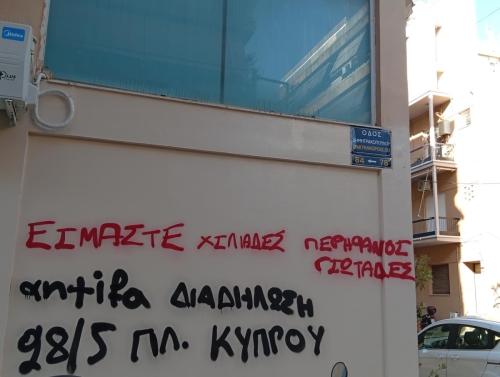 Midea
ΟΔΟΣ
64 78
ΕΙΜΑΣΤΕ ΧΙΛΙΑΔΕΣ ΠΕΡΗΦΑΝΟΙ
ΓΙΩΤΑΔΕΣ
antifa ΔΙΑΔΗΛΩΣΗ
28/5 ΠΛ. ΚΥΠΡΟΥ